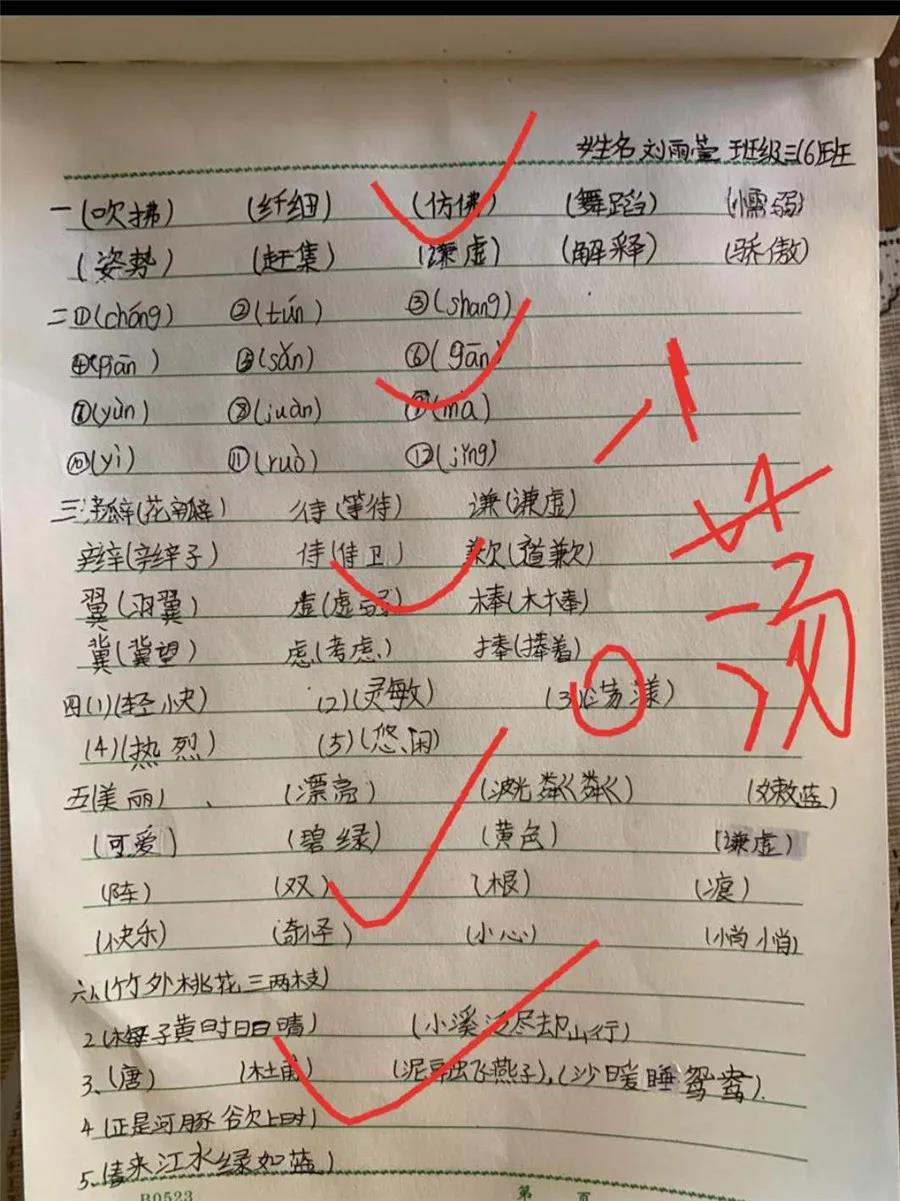 姓名 刘雨萱 班级三(6)班
一(吹拂) (纤细) (仿佛) (舞蹈) (懦弱)
(姿势) (赶集) (谦虚) (解释) (骄傲)
二①(chóng) ②(tún) ③(shang)
④(piān) ⑤(sǎn) ⑥(gān)
⑦(yùn) ⑧(juàn) ⑨(ma)
⑩(yì) ⑪(ruò) ⑫(jīng)
三、瓣(花瓣) 待(等待) 谦(谦虚)
辫(辫子) 侍(侍卫) 歉(道歉)
翼(羽翼) 虚(虚弱) 棒(木棒)
冀(冀望) 虑(考虑) 捧(捧着)
四(1)(轻快) (2)(灵敏) (3)(荡漾)
荡
(4)(热烈) (5)(悠闲)
五(美丽) (漂亮) (波光粼粼) (嫩蓝)
(可爱) (碧绿) (黄色) (谦虚)
(阵) (双) (根) (痕)
(快乐) (奇怪) (小心) (悄悄)
六、(竹外桃花三两枝)
2(梅子黄时日日晴) (小溪泛尽却山行)
3、(唐) (杜甫) (泥融飞燕子),(沙暖睡鸳鸯).
4(正是河豚欲上时)
5.(春来江水绿如蓝)
B0523 第 页